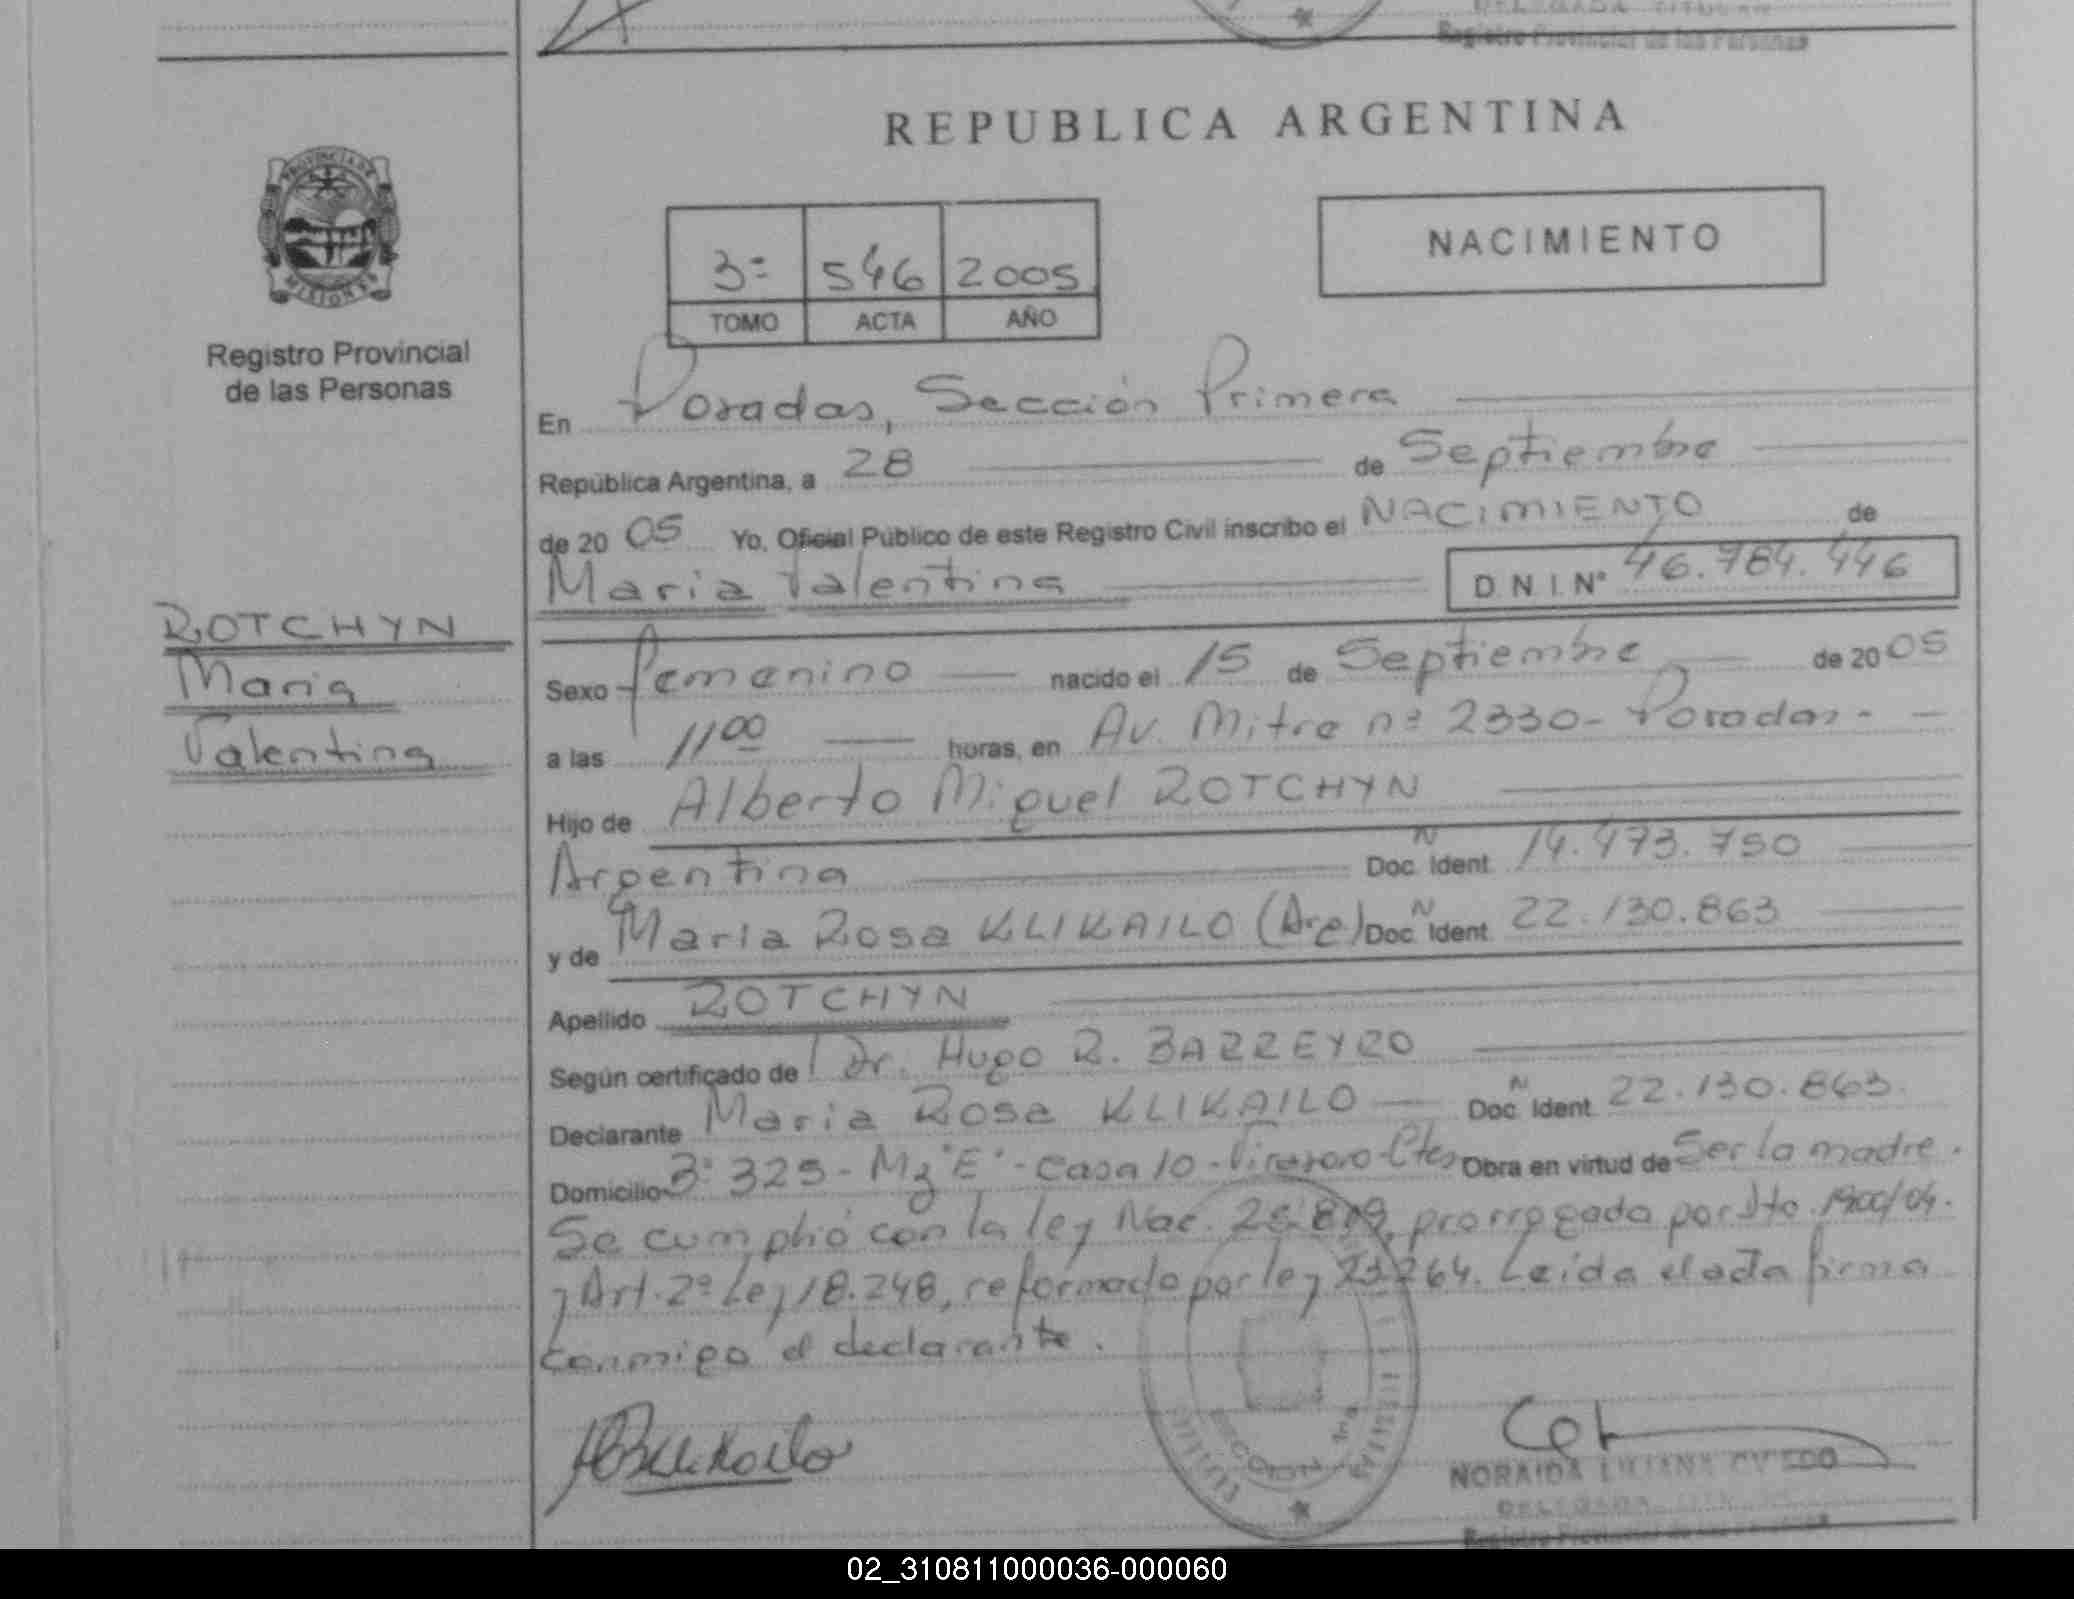 Registro Provincial de las Personas
REPUBLICA ARGENTINA
PROVINCIA DE
MISIONES
Registro Provincial
de las Personas
3ª 546 2005
TOMO ACTA AÑO
NACIMIENTO
En Posadas, Sección Primera
República Argentina, a 28 de Septiembre
de 2005 Yo, Oficial Público de este Registro Civil inscribo el NACIMIENTO de
Maria Valentina D N I Nº 46.784.446
ROTCHYN
Maria
Valentina
Sexo femenino nacido el 15 de Septiembre de 2005
a las 11 00 horas, en Av. Mitre nº 2330 - Posadas -
Hijo de Alberto Miguel ROTCHYN
Argentina Doc. N Ident. 14.473.750
y de Maria Rosa KLIKAILO (Arg) Doc. N Ident. 22.130.863
Apellido ROTCHYN
Según certificado de Dr. Hugo R. BARREYRO
Declarante Maria Rosa KLIKAILO Doc. N Ident. 22.130.863.
Domicilio Bº 325 - Mz "E" - Casa 10 - Virasoro - Ctes Obra en virtud de Ser la madre.
Se cumplió con la ley Nac. prorrogada por Dto. 1900/04.
y Art. 2º Ley 18.248, reformado por ley 23.264. Leída el acta firma
conmigo el declarante.
NORAIDA LILIANA OVIEDO
DELEGADA
Registro Provincial de las Personas
02_310811000036-000060